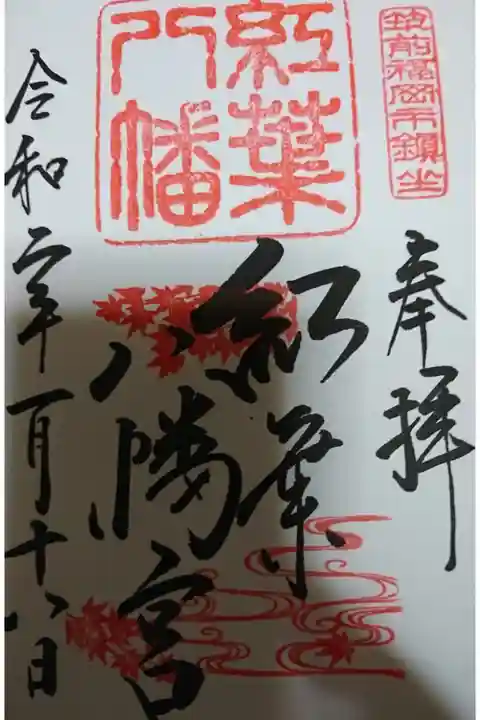 筑前福岡市鎮坐
奉拝
紅葉
八幡
紅葉
八幡宮
令和二年一月十八日